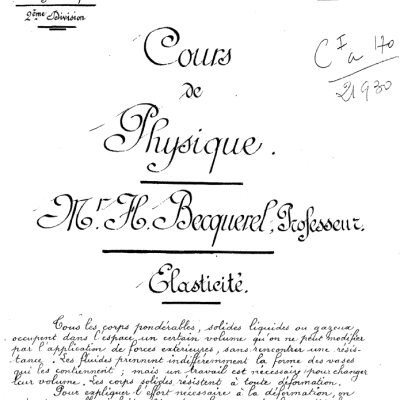 2ème Division
C I a 170
21930
Cours
de
Physique.
Mr. H. Becquerel, Professeur.
Elasticité.
Tous les corps pondérables, solides liquides ou gazeux
occupent dans l'espace un certain volume qu'on ne peut modifier
par l'application de forces extérieures, sans rencontrer une résis-
tance. Les fluides prennent indifféremment la forme des vases
qui les contiennent; mais un travail est nécessaire pour changer
leur volume. Les corps solides résistent à toute déformation.
Pour expliquer l'effort nécessaire à la déformation, on